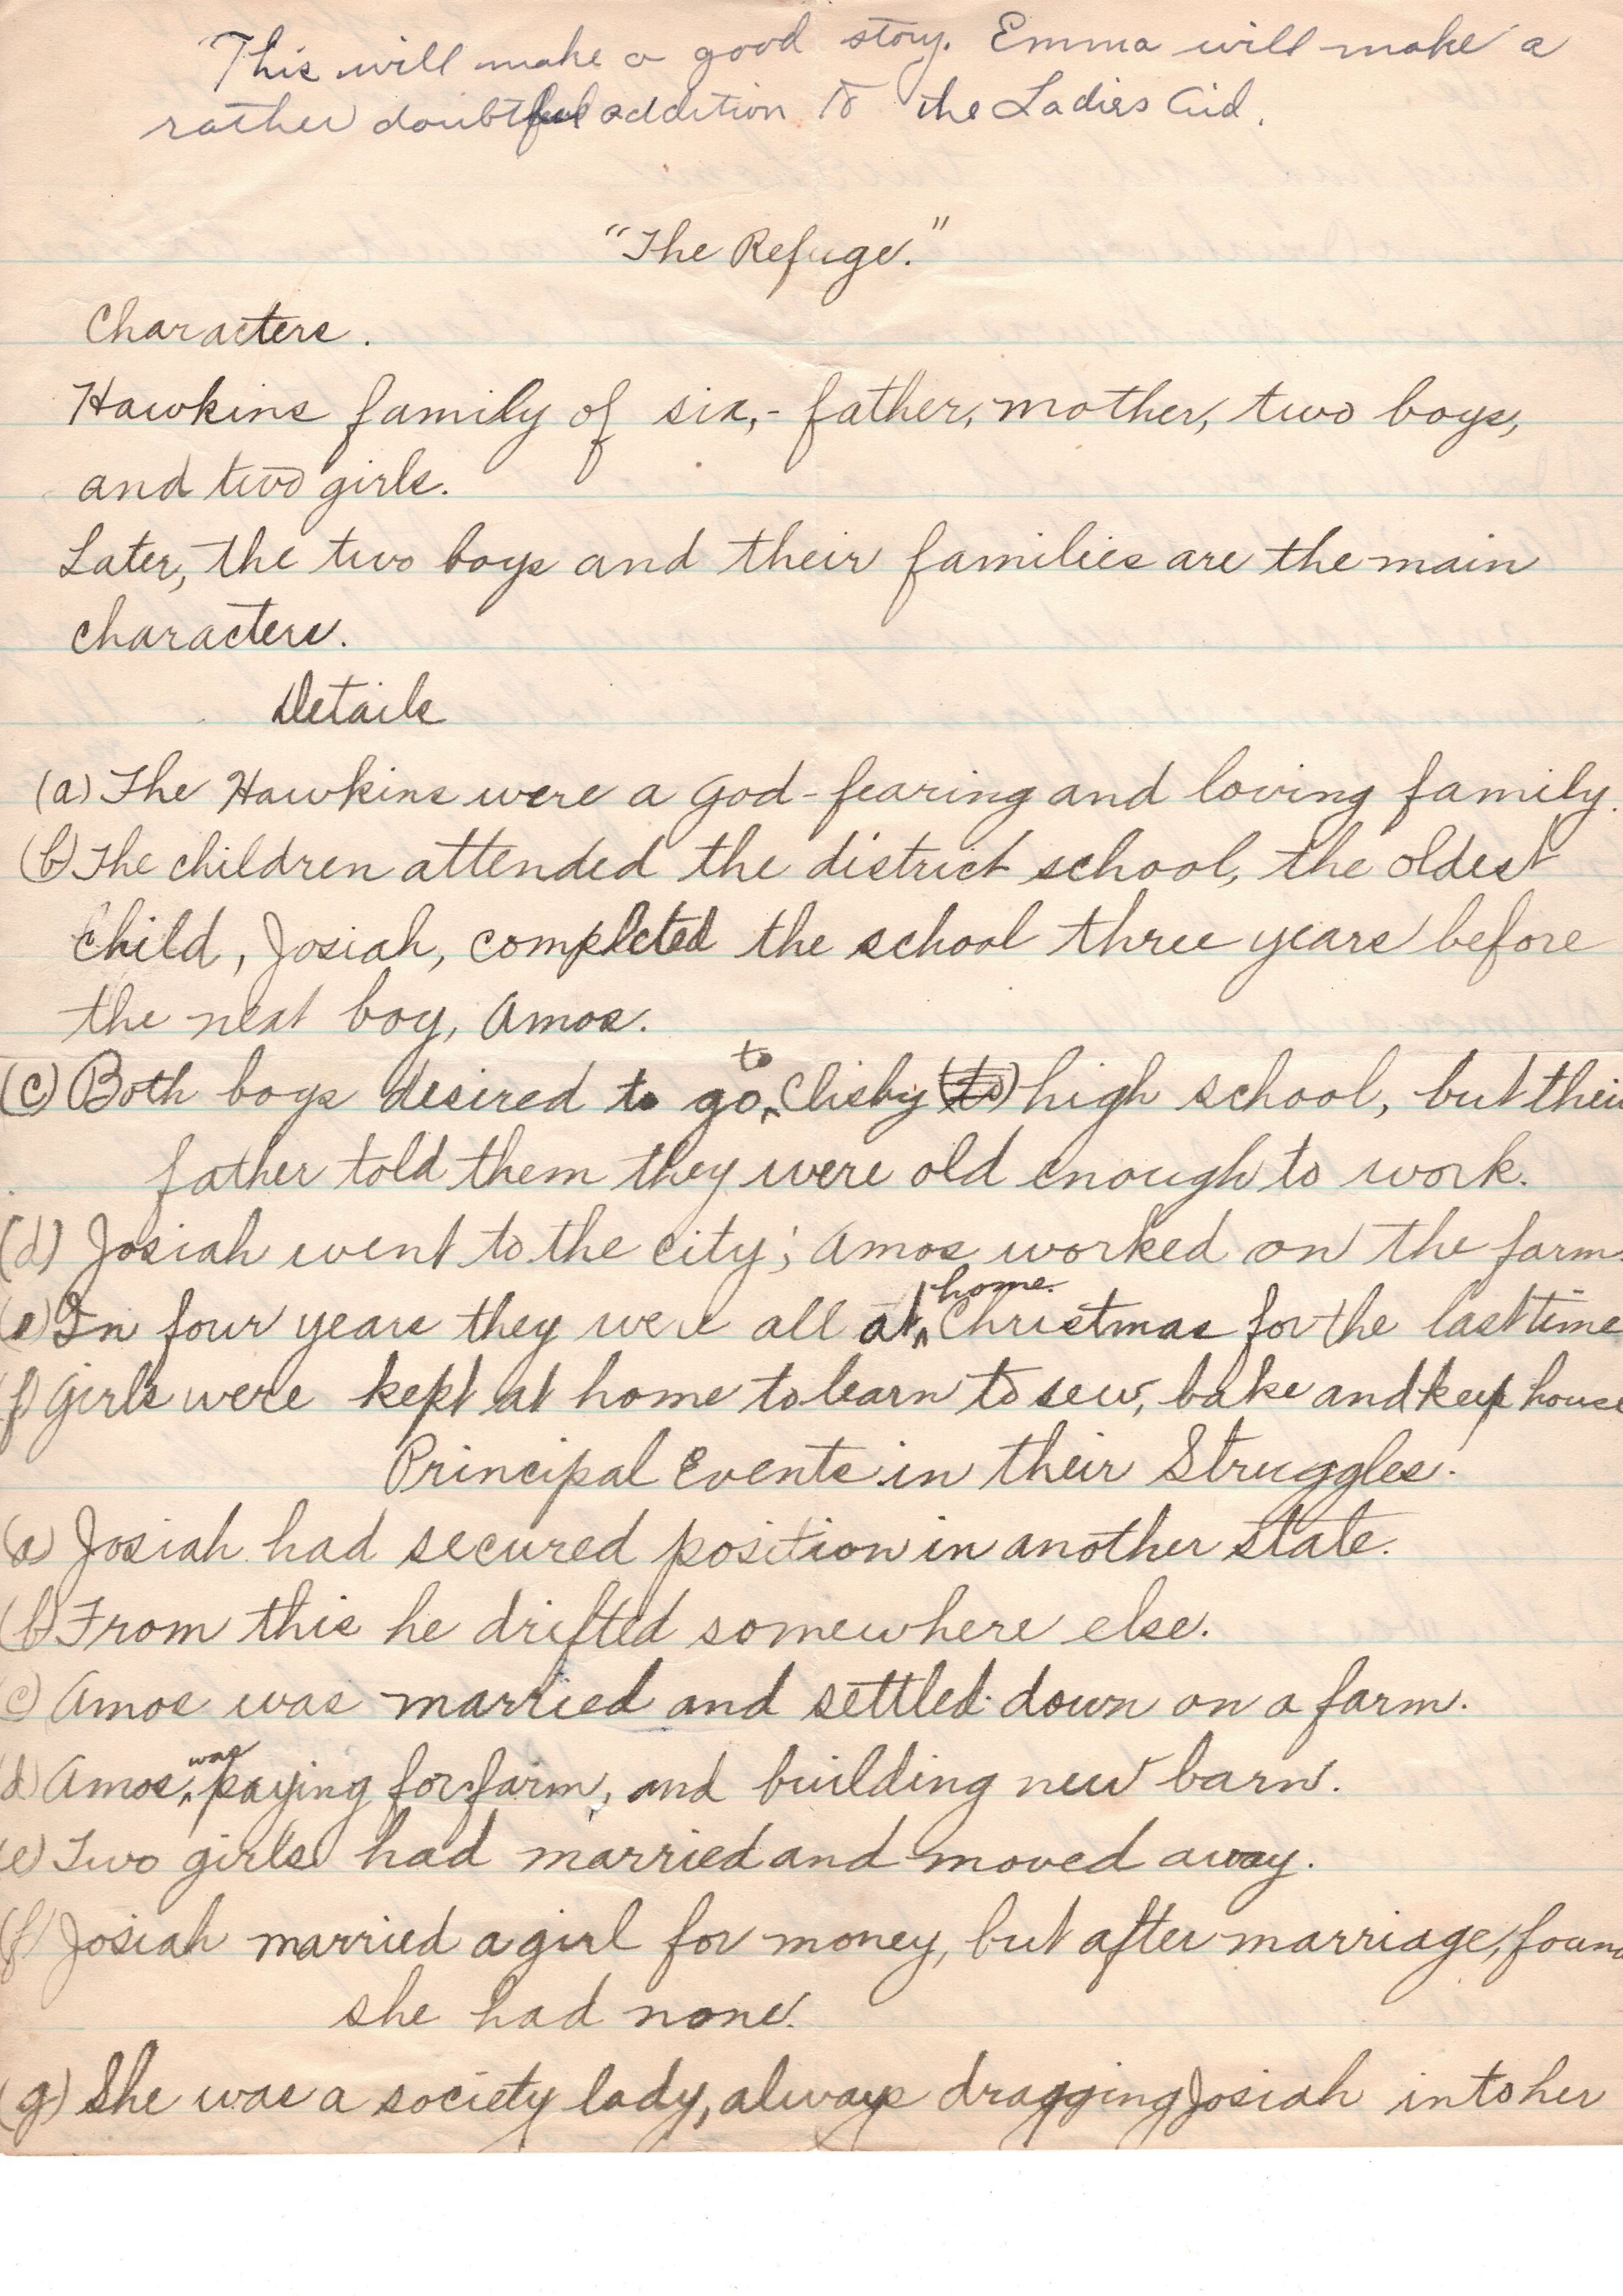 This will make a good story. Emma will make a
rather doubtful addition to the Ladies Aid.
"The Refuge."
Characters.
Hawkins family of six,- father, mother, two boys,
and two girls.
Later, the two boys and their families are the main
characters.
Details
(a) The Hawkins were a God-fearing and loving family.
(b) The children attended the district school, the oldest
child, Josiah, completed the school three years before
the next boy, Amos.
(c) Both boys desired to go to Clisby (to) high school, but their
father told them they were old enough to work.
(d) Josiah went to the city; Amos worked on the farm.
(e) In four years they were all at home Christmas for the last time
(f) Girls were kept at home to learn to sew, bake and keep house
Principal Events in their Struggles.
(a) Josiah had secured position in another state.
(b) From this he drifted somewhere else.
(c) Amos was married and settled down on a farm.
(d) Amos was paying for farm, and building new barn.
(e) Two girls had married and moved away.
(f) Josiah married a girl for money, but after marriage, found
she had none.
(g) She was a society lady, always dragging Josiah into her